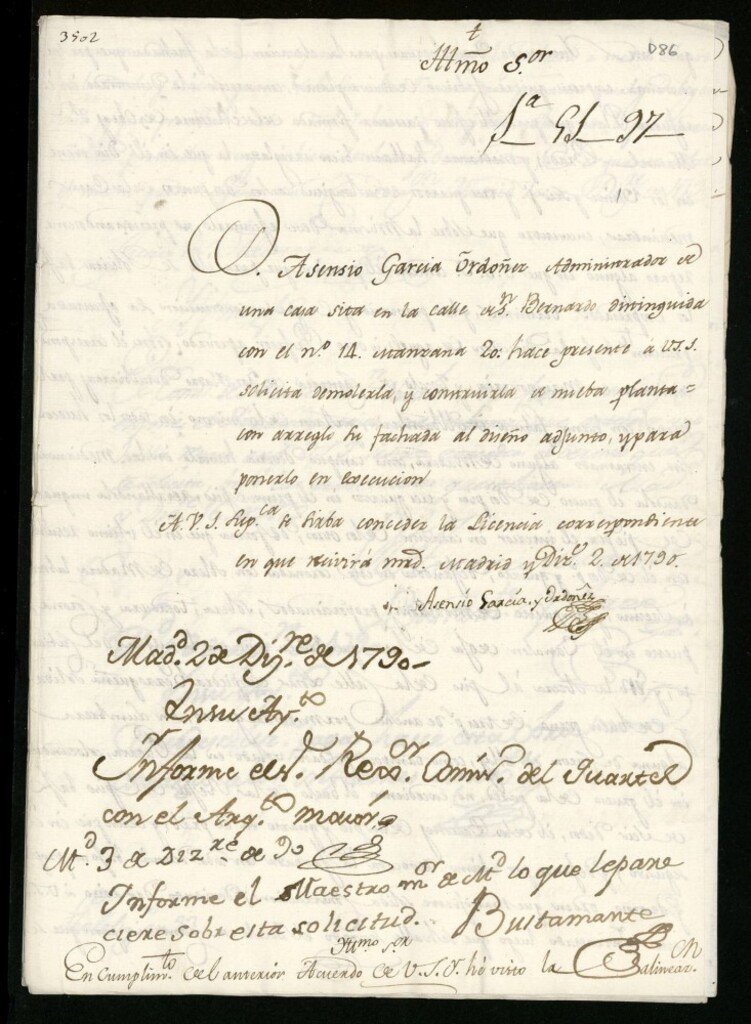 3502
D86
t
Illmo S.or
1a 51 97
D. Asensio Garcia Ordoñez Administrador de
una casa sita en la calle de S.n Bernardo distinguida
con el n.o 14. Manzana 20: hace presente a V.S.I.
solicita demolerla, y construirla de nueba planta=
con arreglo su fachada al diseño adjunto, y para
ponerlo en execucion
A V. S. I. Sup.ca se sirba conceder la Licencia correspondiente
en que recivirá mrd. Madrid y Diz.e 2. de 1790.
Asensio Garcia. y Ordoñez
Mad.d 2 de Diz.re de 1790
En su Ay.to
Informe el S. Rex.or Comis.o del Quartel
con el Arq.to maior.
M.d 3 de Diz.re de 90
Informe el Maestro m.or de M.d lo que le pare
ciere sobre esta solicitud. Bustamante
Illmo S.or
En cumplim.to del anterior Acuerdo de V.S.I. hé visto la
alinear.on